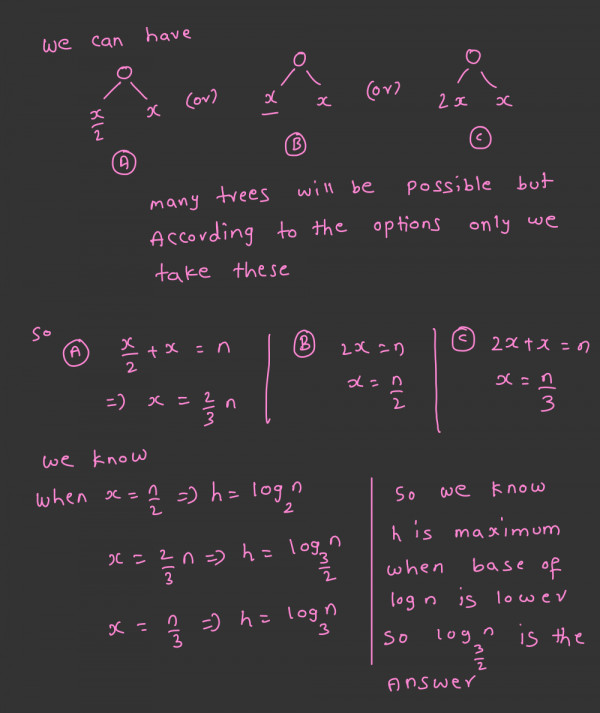 we can have
O O O
x/2 x (or) x x (or) 2x x
A B C
many trees will be possible but
According to the options only we
take these
so
A x/2 + x = n
=> x = 2/3 n
B 2x = n
x = n/2
C 2x + x = n
x = n/3
we know
when x = n/2 => h = log_2 n
x = 2/3 n => h = log_{3/2} n
x = n/3 => h = log_3 n
so we know
h is maximum
when base of
log n is lower
so log_{3/2} n is the
Answer